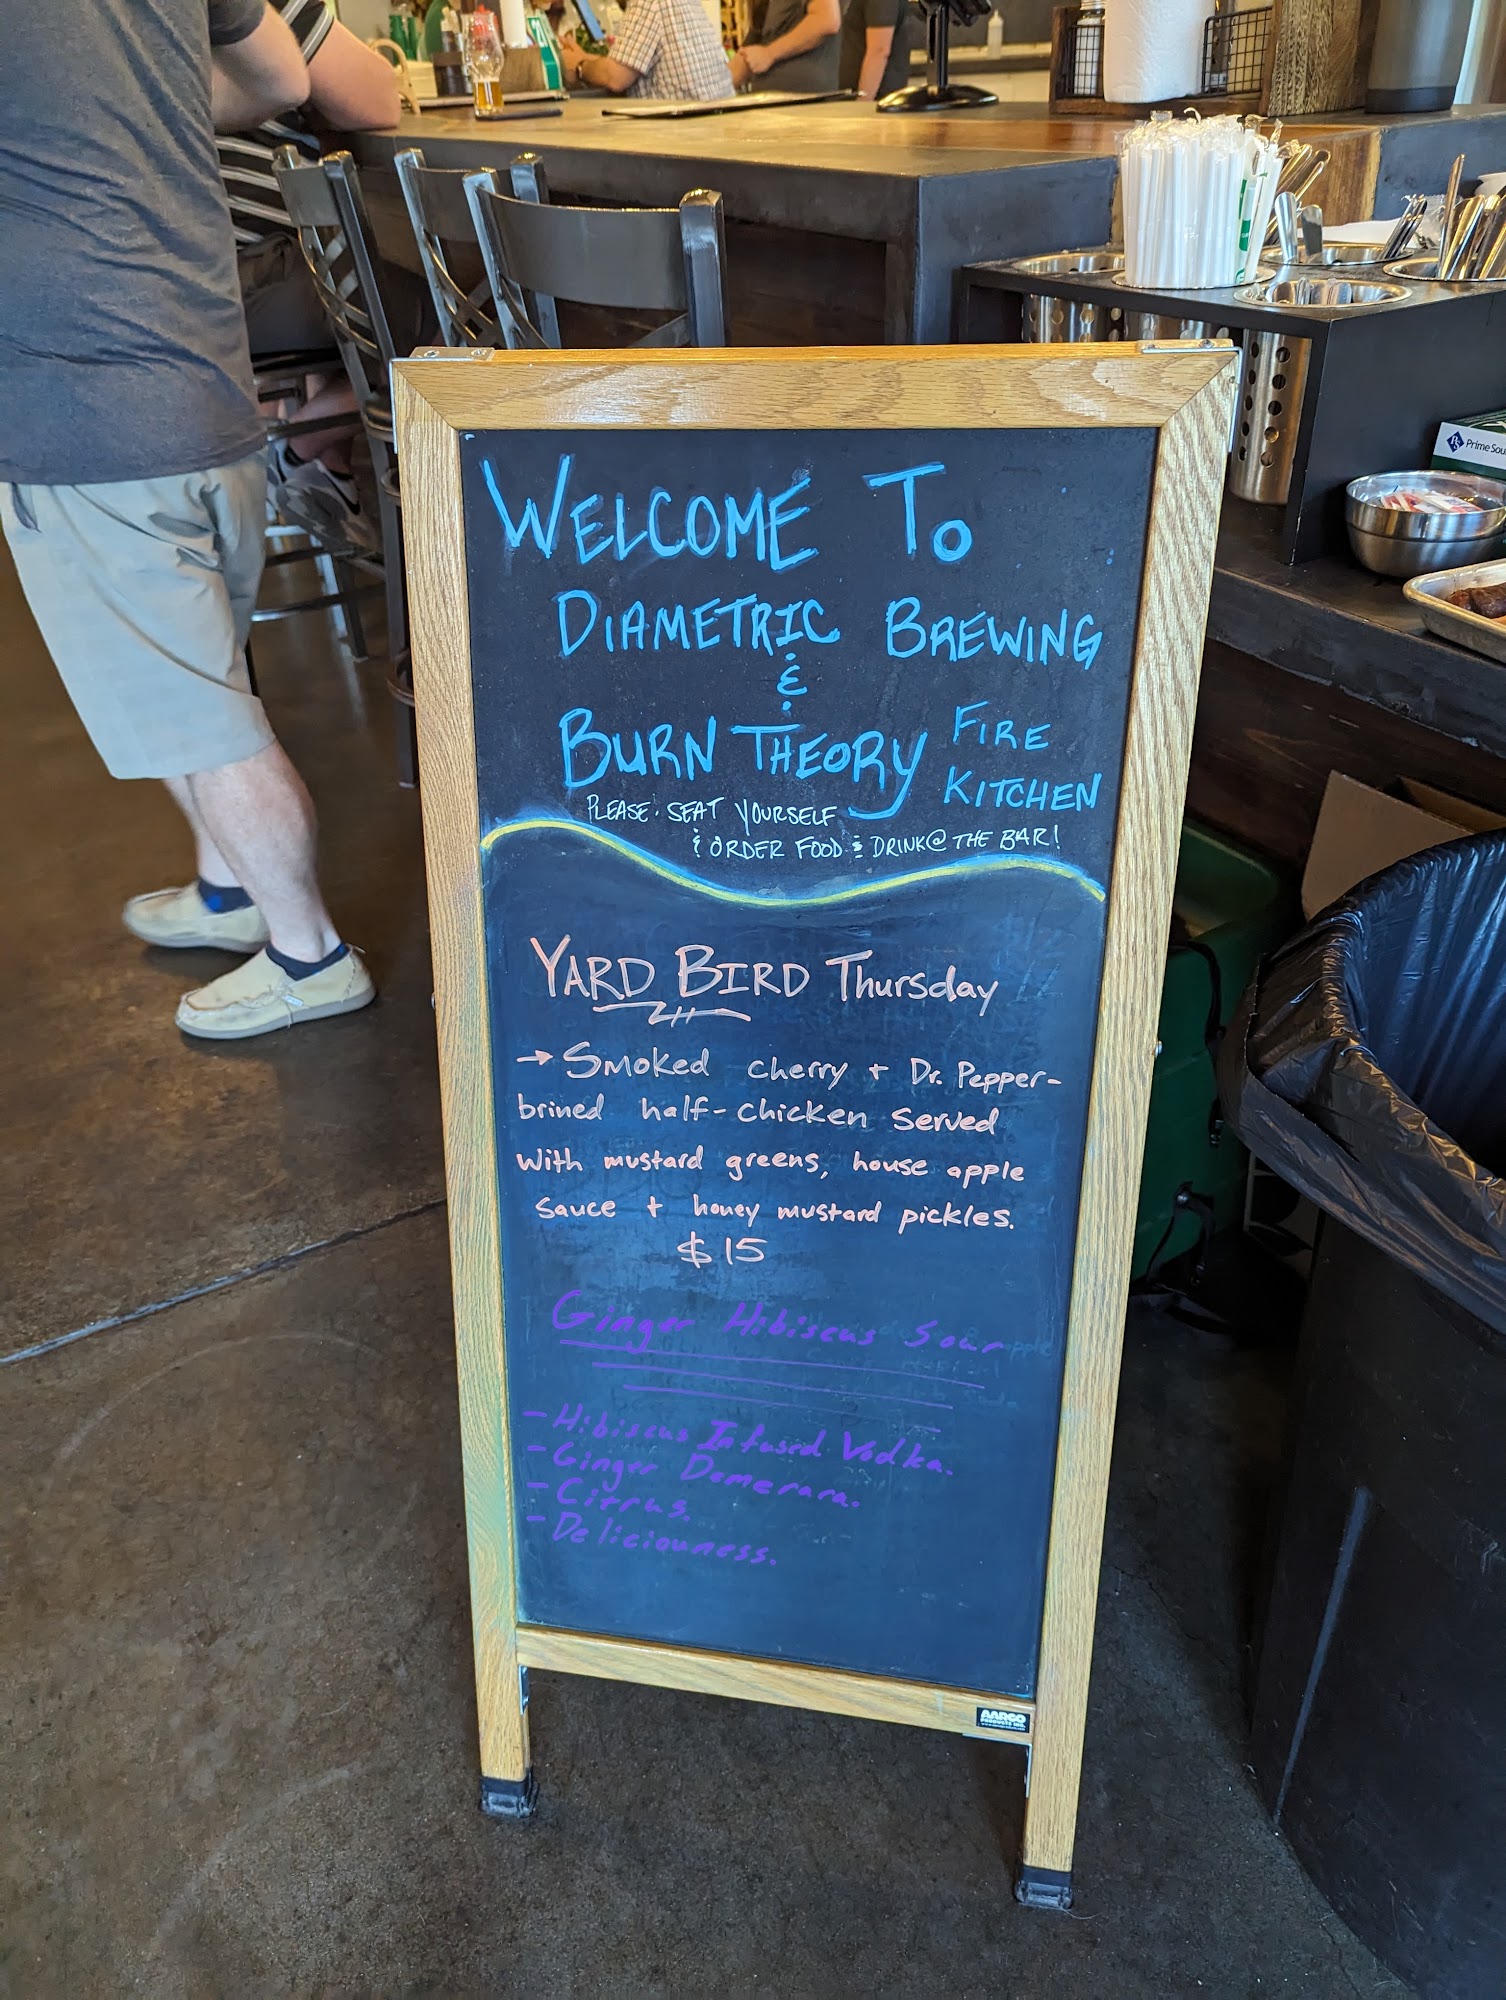 WELCOME TO
DIAMETRIC BREWING
&
BURN THEORY FIRE
KITCHEN
PLEASE SEAT YOURSELF
& ORDER FOOD & DRINK @ THE BAR!
YARD BIRD Thursday
→ Smoked cherry + Dr. Pepper-
brined half-chicken served
with mustard greens, house apple
sauce + honey mustard pickles.
$15
Ginger Hibiscus Sour
- Hibiscus Infused Vodka.
- Ginger Demerara.
- Citrus.
- Deliciouness.
AARCO
PRODUCTS INC.
Prime Sou